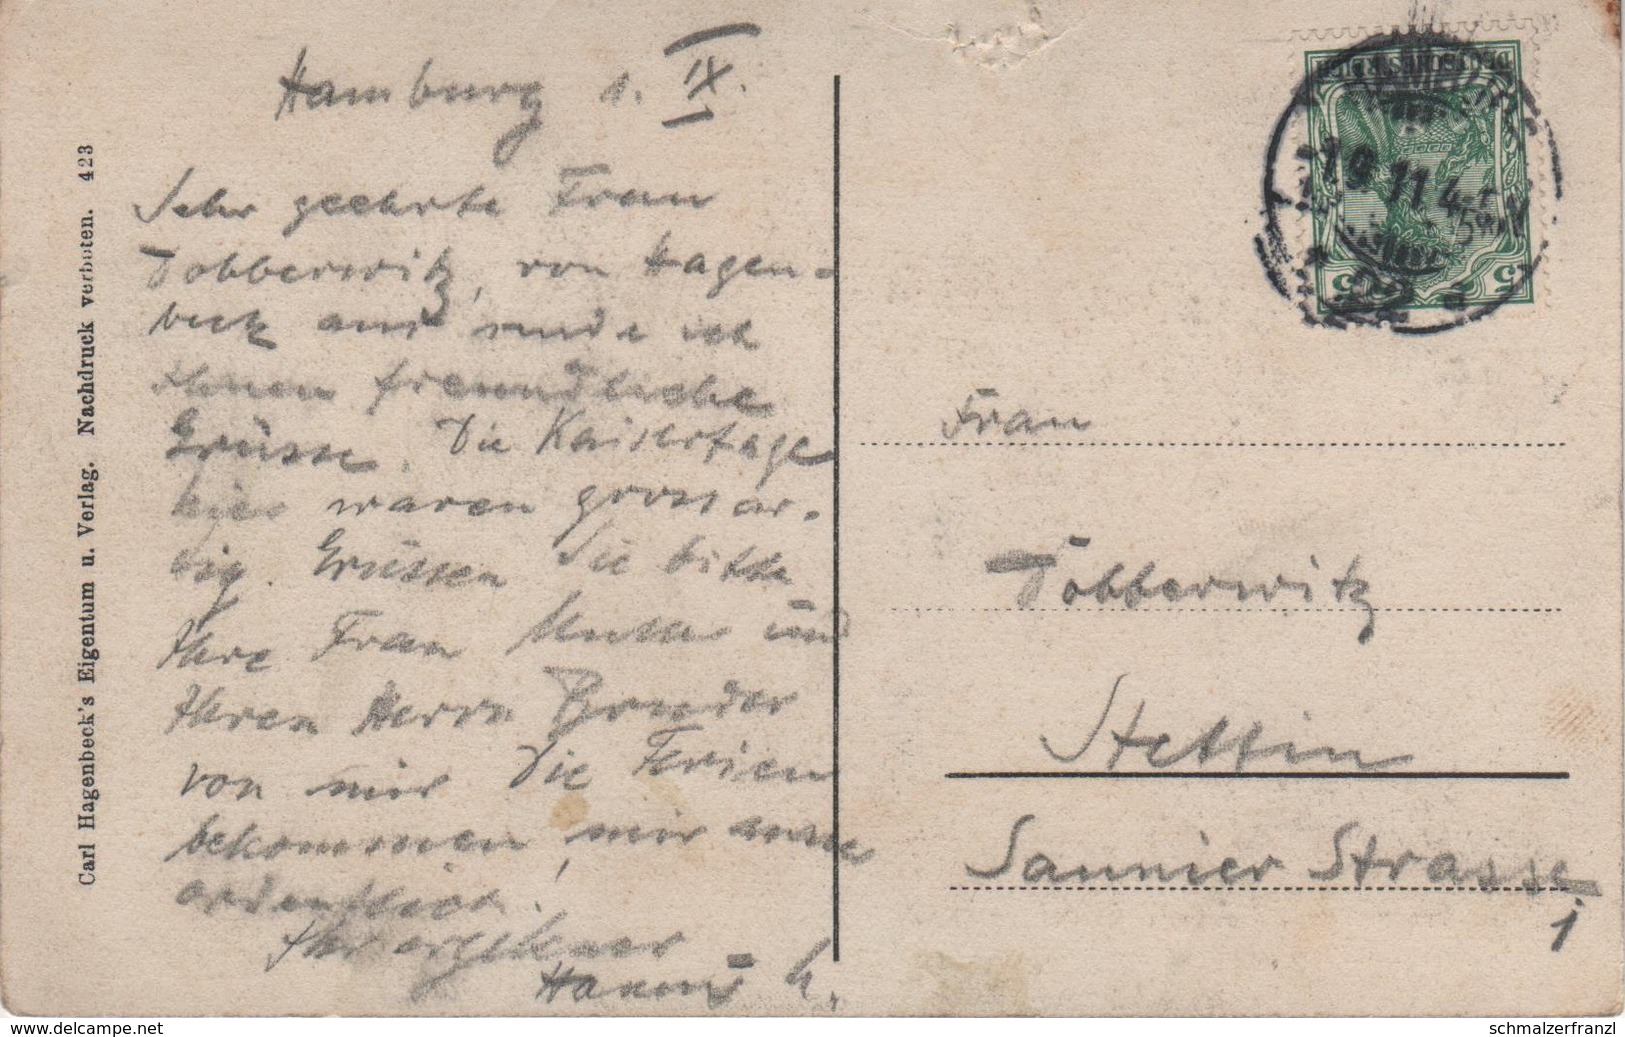 Hamburg 1. IX.
Sehr geehrte Frau
Dobberwitz, von Hagen-
beck aus sende ich
Ihnen freundliche
Grüsse. Die Kaisertage
hier waren grossar-
tig. Grüssen Sie bitte
Ihre Frau Mutter und
Ihren Herrn Bruder
von mir. Die Ferien
bekommen mir
ordentlich.
Ihr ergebener
H.
Carl Hagenbeck's Eigentum u. Verlag. Nachdruck verboten. 423
DEUTSCHES REICH
5 5
HAMBURG
1.9.11.4-5N
Frau
Dobberwitz
Stettin
Sannier Strasse
1
delcampe.net
schmalzerfranzl